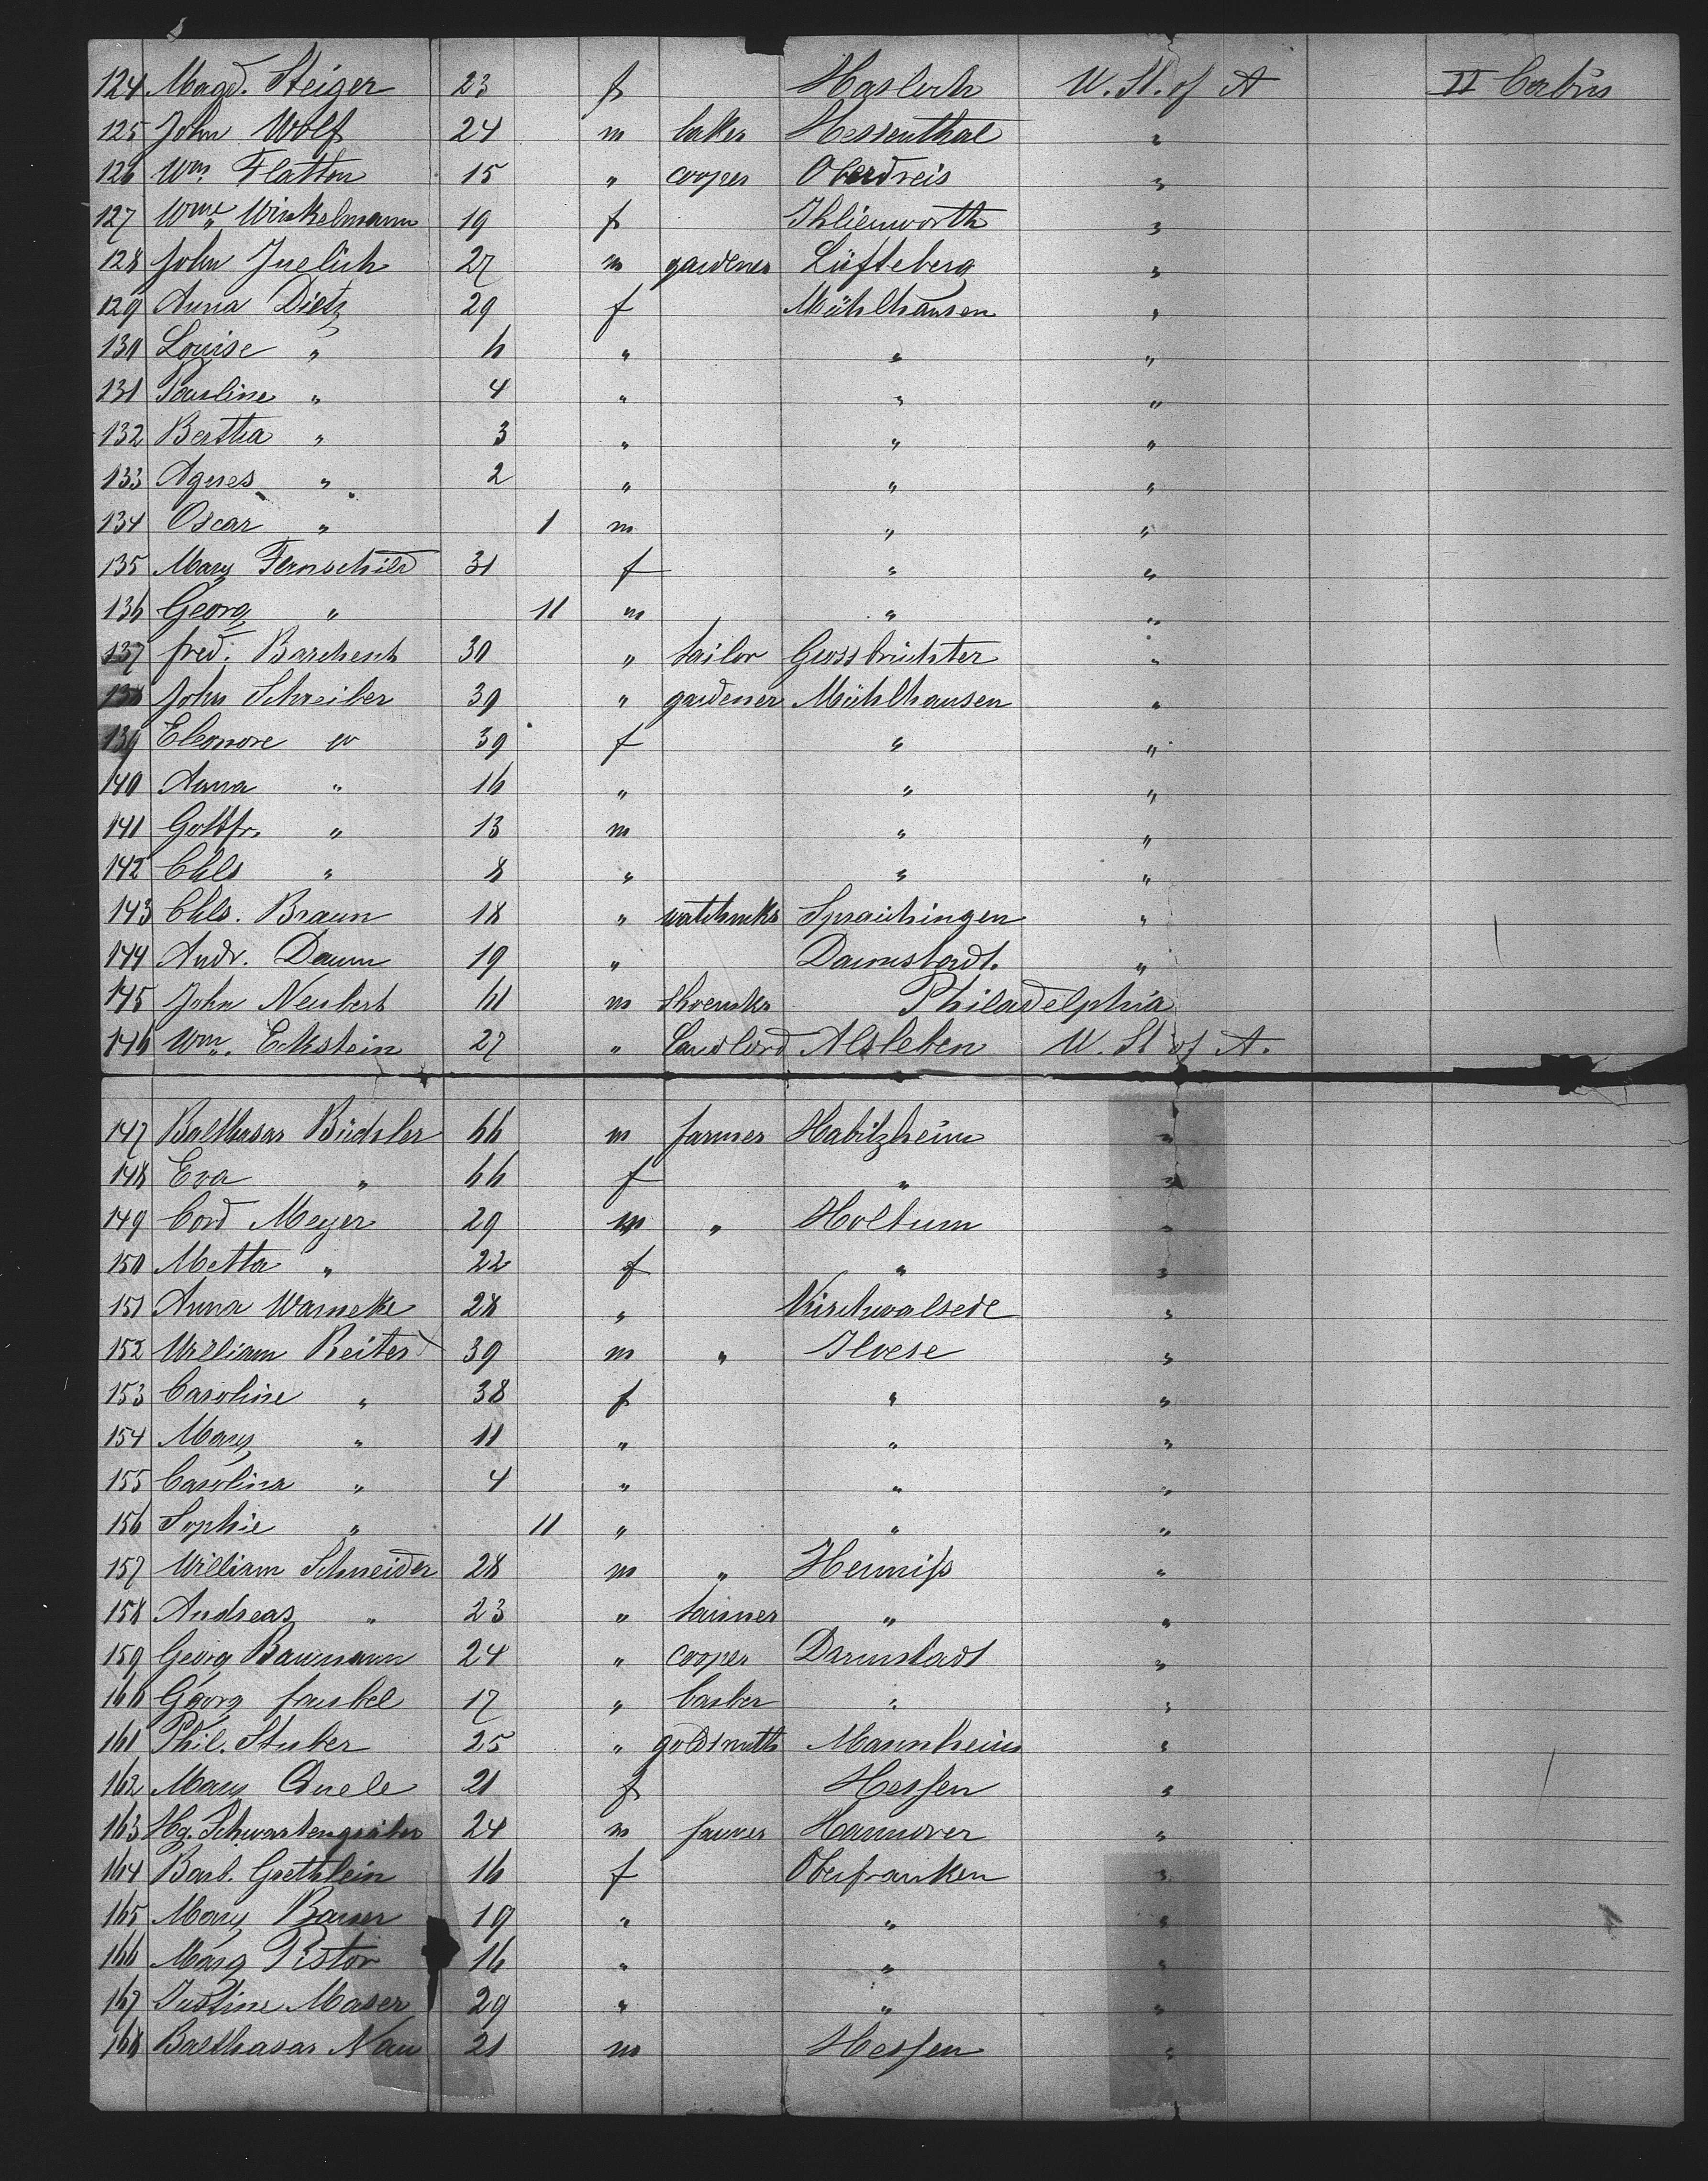 124 Magd. Steiger 23 f Hasloch U. St. of A II Cabin
125 John Wolf 24 m baker Hessenthal "
126 Wm. Flatten 15 " cooper Oberdreis "
127 Wme. Winkelmann 19 f Ihlienworth "
128 John Juelich 27 m gardener Lüfteberg "
129 Anna Dietz 29 f Mühlhausen "
130 Louise " 6 " " "
131 Pauline " 4 " " "
132 Bertha " 3 " " "
133 Agnes " 2 " " "
134 Oscar " 1 m " "
135 Mary Fernschild 31 f " "
136 Georg " 11 m " "
137 fred. 30 " tailor Grossbrüchter "
138 John Schreiber 39 " gardener Mühlhausen "
139 Eleonore " 39 f " "
140 Anna " 16 " " "
141 Gottfr. " 13 m " "
142 Chls " 8 " " "
143 Chls. Braun 18 " watchmkr Spaichingen "
144 Andr. Daum 19 " Darmstadt. "
145 John Neubert 61 m shoemkr Philadelphia
146 Wm. Eckstein 27 " Landlord Alsleben U. St of A.
147 Balthasar 66 m farmer Habitzheim "
148 Eva " 66 f " "
149 Cord Meyer 29 m " Holtum "
150 Metta " 22 f " "
151 Anna Warneke 28 " Kirchwalsede "
152 William Reiter 39 m " Ilvese "
153 Caroline " 38 f " "
154 Mary " 11 " " "
155 Carolina " 4 " " "
156 Sophie " 11 " " "
157 William Schneider 28 m " "
158 Andreas " 23 " " "
159 Georg Baumann 24 " cooper Darmstadt "
160 Georg faubel 17 " barber " "
161 Phil. Stuber 25 " goldsmith Mannheim "
162 Mary Quele 21 f Hessen "
163 Hy. 24 m farmer Hannover "
164 Barb. Grethlein 16 f Oberfranken "
165 Mary Bauer 19 " " "
166 Marg Pistor 16 " " "
167 Justine Maser 29 " " "
168 Balthasar Nau 21 m Hessen "